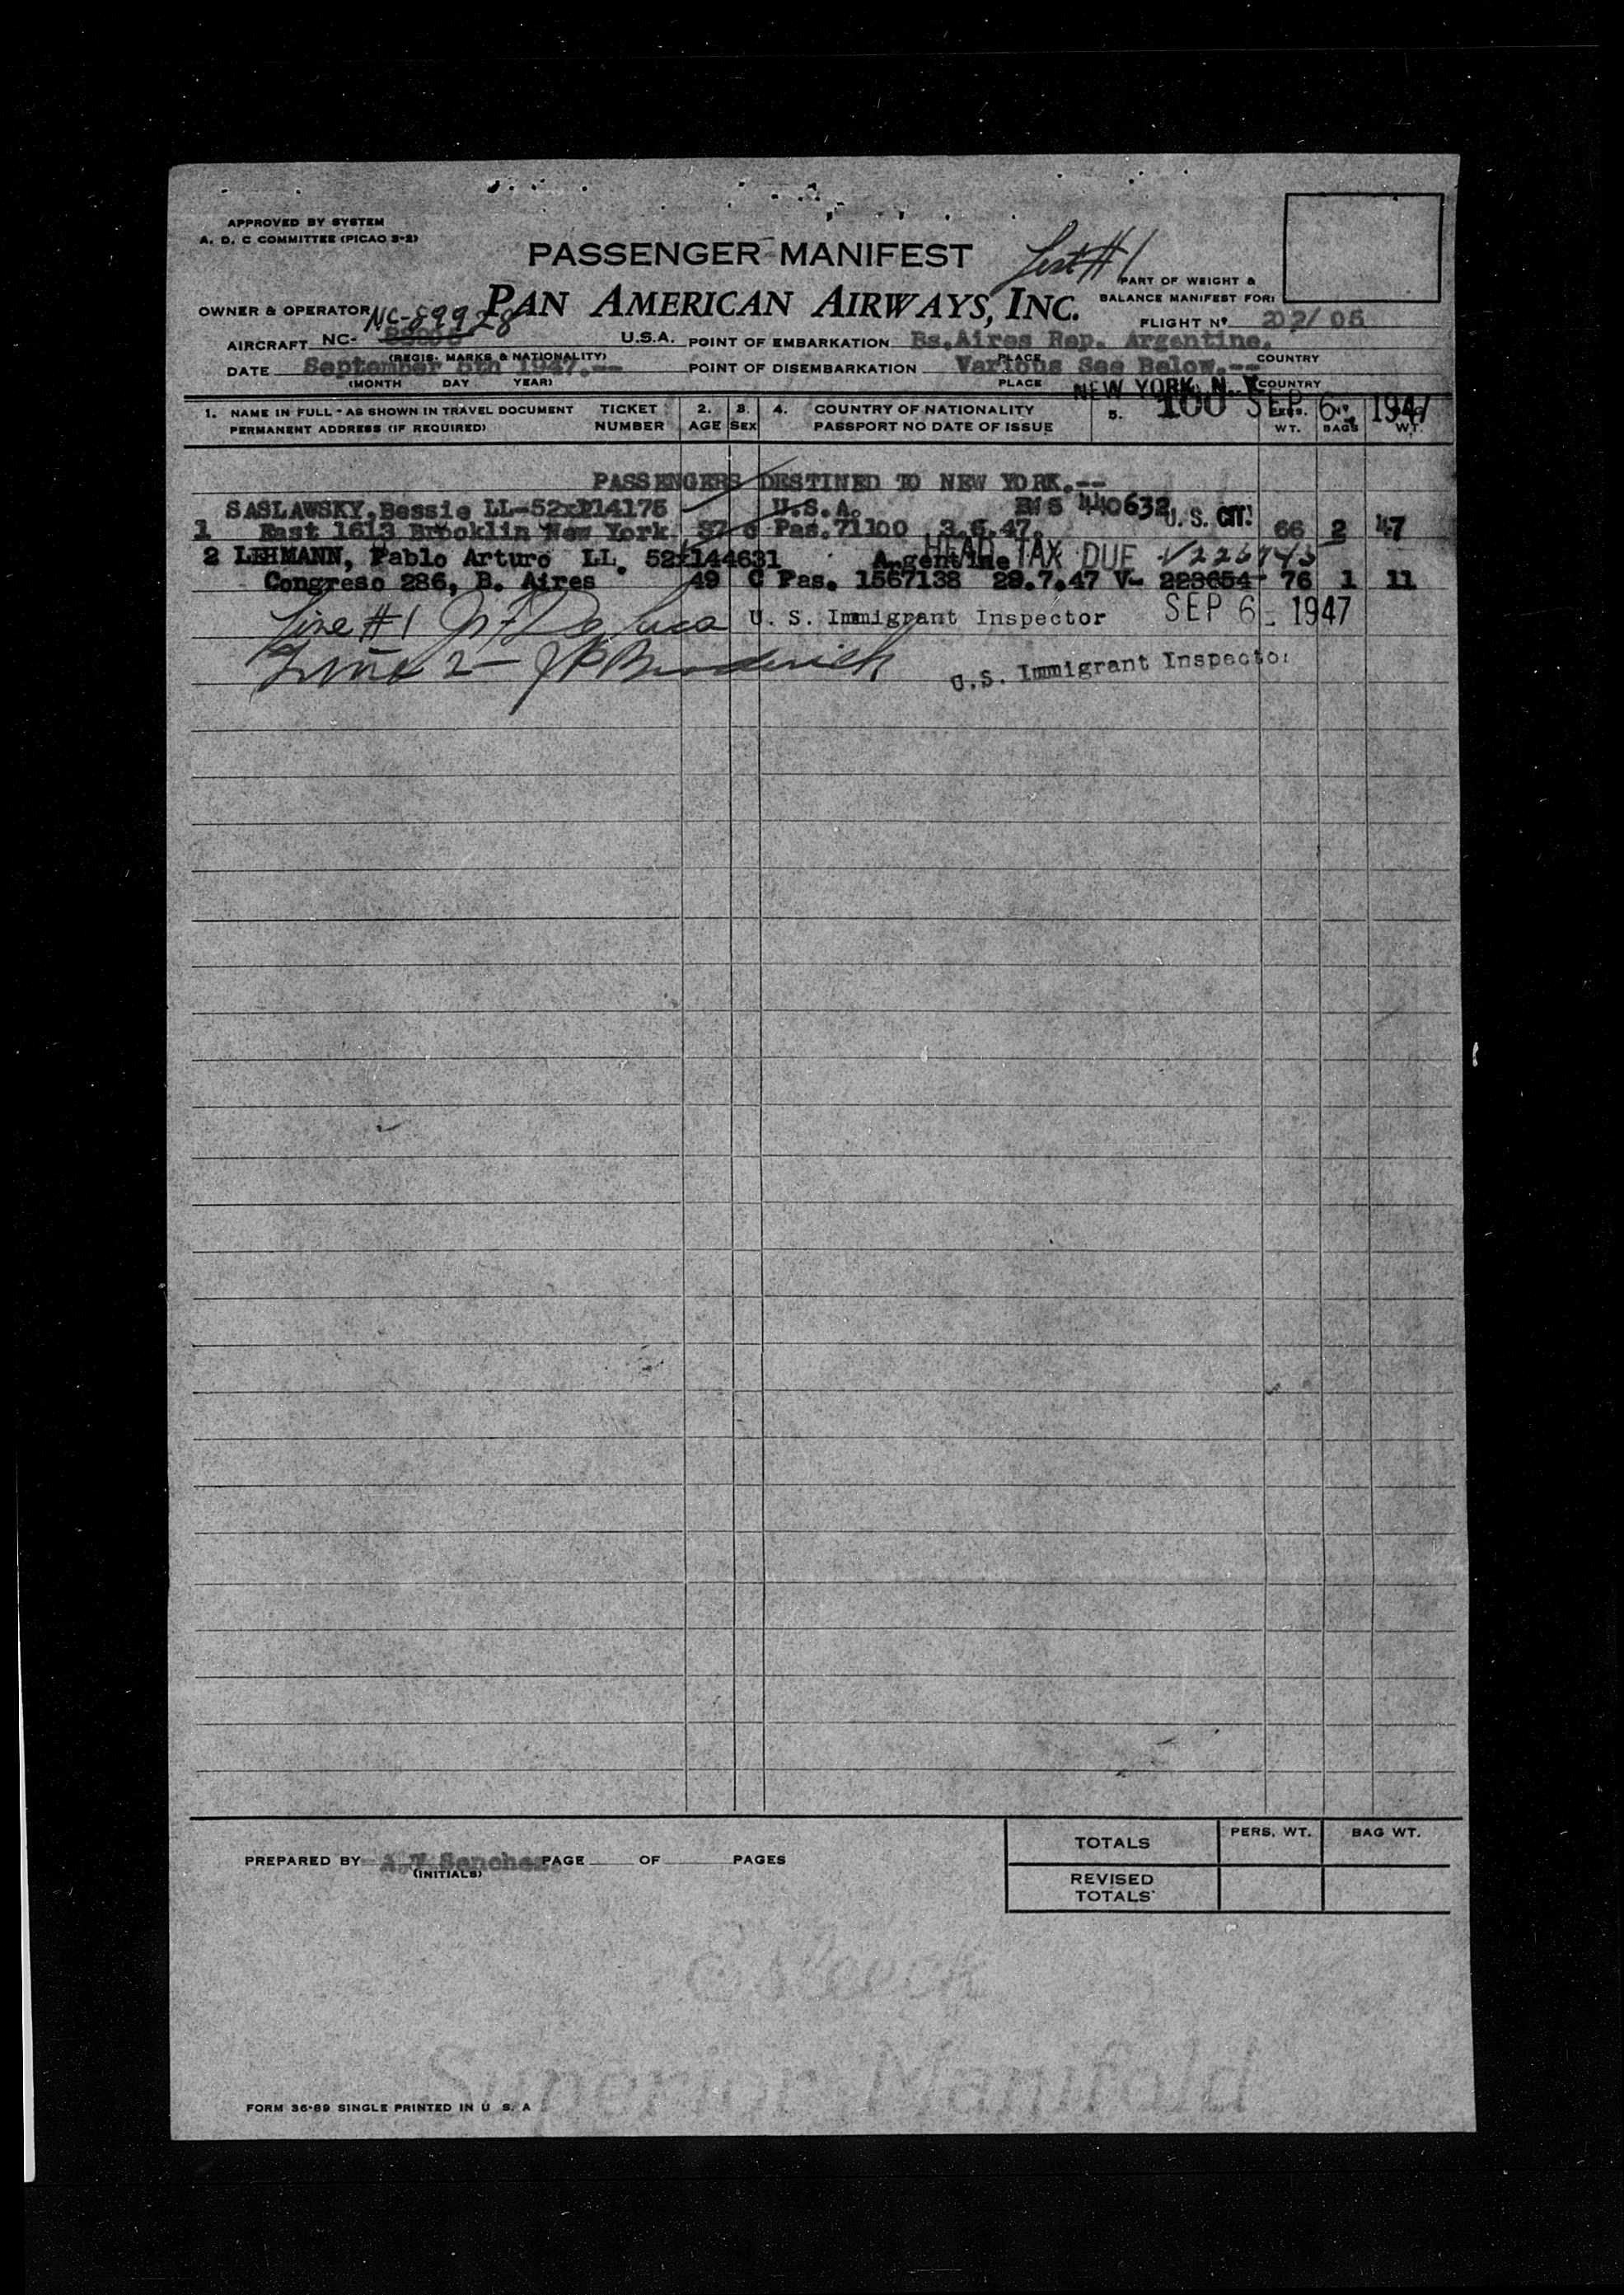 APPROVED BY SYSTEM
A. D. C COMMITTEE (PICAO 3-2)
PASSENGER MANIFEST
List #1
PART OF WEIGHT &
BALANCE MANIFEST FOR:
OWNER & OPERATOR PAN AMERICAN AIRWAYS, INC.
NC-89928
FLIGHT Nº 202/05
AIRCRAFT NC- U.S.A. POINT OF EMBARKATION Bs.Aires Rep. Argentine.
(REGIS. MARKS & NATIONALITY) PLACE COUNTRY
DATE September 5th 1947.-- POINT OF DISEMBARKATION Various See Below.--
(MONTH DAY YEAR) PLACE COUNTRY
NEW YORK, N. Y.
100 SEP 6 1947
1. NAME IN FULL - AS SHOWN IN TRAVEL DOCUMENT TICKET 2. 3. 4. COUNTRY OF NATIONALITY 5. PERS. Nº BAG
PERMANENT ADDRESS (IF REQUIRED) NUMBER AGE SEX PASSPORT NO DATE OF ISSUE WT. BAGS WT.
PASSENGERS DESTINED TO NEW YORK.--
SASLAWSKY,Bessie LL-52x214175 U.S.A. 440632 U. S. CIT.
1 East 1613 Brooklin New York 37 c Pas.71100 3.6.47. 66 2 47
HEAD TAX DUE
2 LEHMANN, Pablo Arturo LL. 52x144631 Argentine
Congreso 286, B. Aires 49 C Pas. 1567138 29.7.47 V- 223654 76 1 11
Line #1 U. S. Immigrant Inspector SEP 6 - 1947
Line 2 - J P Broderick U.S. Immigrant Inspector
TOTALS PERS. WT. BAG WT.
PREPARED BY A.V. Sanchez PAGE OF PAGES
(INITIALS)
REVISED
TOTALS
Esleeck
Superior Manifold
FORM 36-89 SINGLE PRINTED IN U S. A